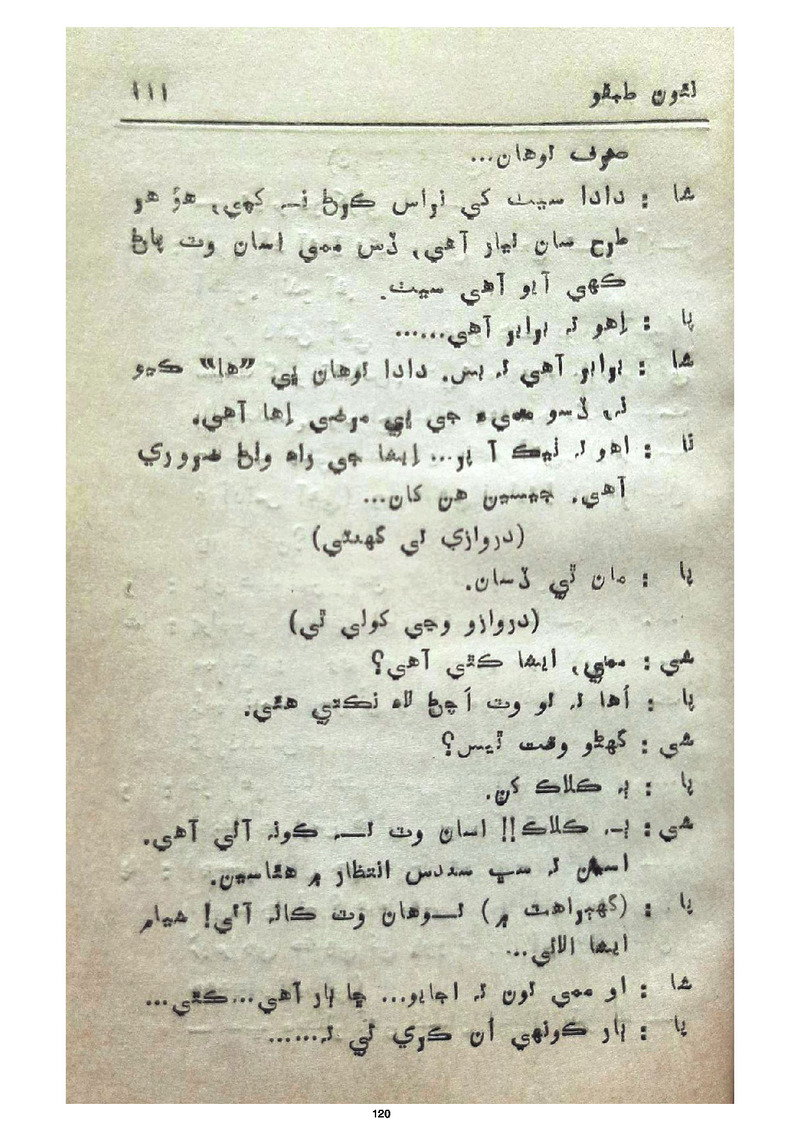 نئون طبقو ١١١
صرف توهان...
شا : دادا سيٺ کي نراس ڪرڻ نہ کپي، هوُ هر
طرح سان تيار آهي، ڏس ممي اسان وٽ پاڻ
ڪهي آيو آهي سيٺ.
پا : اِهو تہ برابر آهي......
شا : برابر آهي تہ بس. دادا توهان ڀي ”ها“ ڪيو
نہ، ڏسو ممي‌ءَ جي ڀي مرضي اِها آهي.
نا : اهو تہ ٺيڪ آ پر... ايشا جي راه وٺڻ ضروري
آهي. جيسين هن کان...
(دروازي تي گهنٽي)
پا : مان ٿي ڏسان.
(دروازو وڃي کولي ٿي)
شي : ممي، ايشا ڪٿي آهي؟
پا : اُها تہ تو وٽ اَچڻ لاءِ نڪتي هئي.
شي : گهڻو وقت ٿيس؟
پا : ٻہ ڪلاڪ کن.
شي : ٻہ ڪلاڪ!! اسان وٽ تہ ڪونہ آئي آهي.
اسين تہ سڀ سندس انتظار ۾ هئاسين.
پا : (گهٻراهٽ ۾) توهان وٽ ڪانہ آئي! شيام
ايشا الائي...
شا : او ممي تون تہ اجايو... ڇا ٻار آهي...ڪٿي...
پا : ٻار ڪونهي اُن ڪري ئي تہ......
120